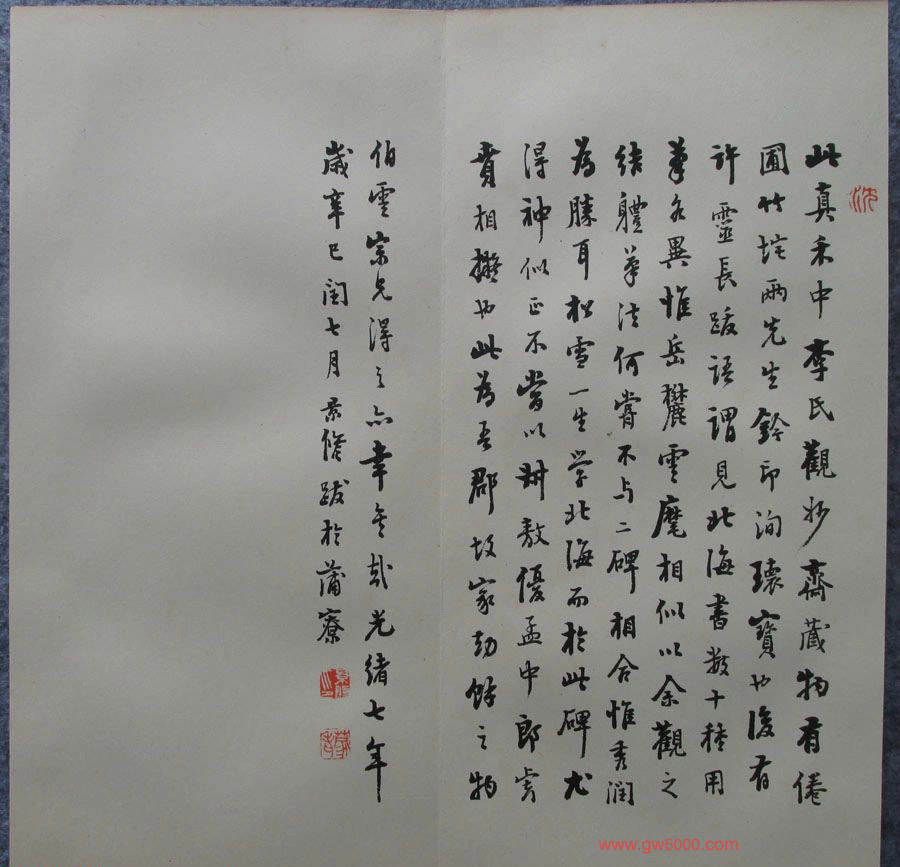 此真禾中李氏觀妙齋藏物有倦
圃竹垞兩先生鈐印洵瓌寶也後有
許靈長跋語謂見北海書數十種用
筆各異惟岳麓雲麾相似以余觀之
結體筆法何嘗不与二碑相合惟秀潤
為勝耳松雪一生学北海而於此碑尤
得神似正不當以叔敖優孟中郎虎
賁相擬也此為吾郡故家劫餘之物
伯雲宗兄得之亦幸矣哉光緒七年
歲辛巳閏七月景脩跋於蒲寮
www.gw5000.com